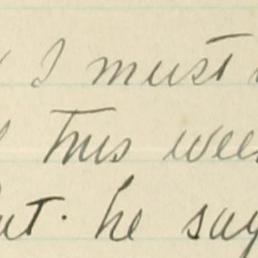 I must
this wee
he say